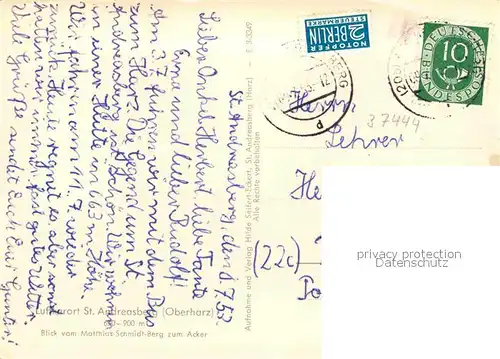 St. Andreasberg, den 8.7.53
Lieber Onkel Herbert, liebe Tante
Erna und lieber Rudolf!
Am 3.7. fuhren wir mit dem Bus
zum Harz. Die Gegend um St.
Andreasberg ist schön. Wir wohnen
in einer Hütte in 663 m Höhe.
Wir fahren am 11.7. wieder
zurück. Heute regnet es aber sonst
hatten wir immer fast gutes Wetter.
Viele Grüße sendet Euch Euer Günter!
Luftkurort St. Andreasberg (Oberharz)
-900 m
Blick vom Matthias-Schmidt-Berg zum Acker
Aufnahme und Verlag Hilde Seifert-Eckert, St. Andreasberg (Harz)
Alle Rechte vorbehalten
NOTOPFER
2 BERLIN
STEUERMARKE
DEUTSCHE
BUNDESPOST
10
Herrn
Lehrer
37444
He
(22c)
privacy protection
watermark